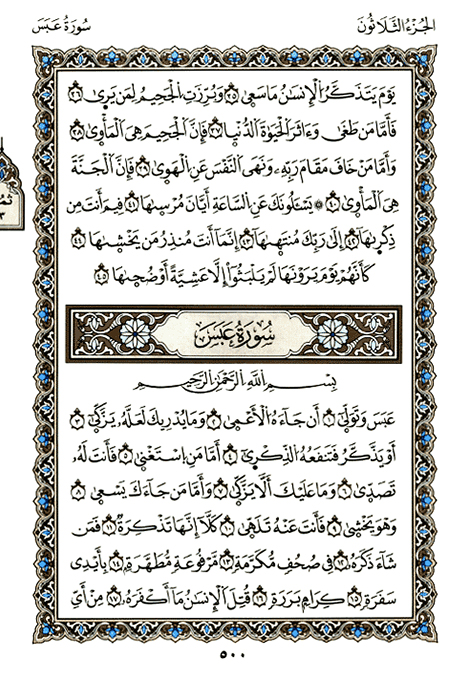 الجُزْءُ الثَّلَاثُونَ
سُورَةُ عَبَسَ
يَوْمَ يَتَذَكَّرُ الْإِنسَٰنُ مَا سَعَىٰ ٣٥ وَبُرِّزَتِ الْجَحِيمُ لِمَن يَرَىٰ ٣٦
فَأَمَّا مَن طَغَىٰ وَءَاثَرَ الْحَيَوٰةَ الدُّنْيَا ٣٧ فَإِنَّ الْجَحِيمَ هِيَ الْمَأْوَىٰ ٣٨
وَأَمَّا مَنْ خَافَ مَقَامَ رَبِّهِۦ وَنَهَى النَّفْسَ عَنِ الْهَوَىٰ ٣٩ فَإِنَّ الْجَنَّةَ
هِيَ الْمَأْوَىٰ ٤٠ ۞ يَسْـَٔلُونَكَ عَنِ السَّاعَةِ أَيَّانَ مُرْسَىٰهَا ٤١ فِيمَ أَنتَ مِن
ذِكْرَىٰهَا ٤٢ إِلَىٰ رَبِّكَ مُنتَهَىٰهَا ٤٣ إِنَّمَا أَنتَ مُنذِرُ مَن يَخْشَىٰهَا ٤٤
كَأَنَّهُمْ يَوْمَ يَرَوْنَهَا لَمْ يَلْبَثُوا۟ إِلَّا عَشِيَّةً أَوْ ضُحَىٰهَا ٤٥
سُورَةُ عَبَسَ
بِسْمِ اللَّهِ الرَّحْمَٰنِ الرَّحِيمِ
عَبَسَ وَتَوَلَّىٰ ١ أَن جَاءَهُ الْأَعْمَىٰ ٢ وَمَا يُدْرِيكَ لَعَلَّهُۥ يَزَّكَّىٰ ٣
أَوْ يَذَّكَّرُ فَتَنفَعُهُ الذِّكْرَىٰ ٤ أَمَّا مَنِ اسْتَغْنَىٰ ٥ فَأَنتَ لَهُۥ
تَصَّدَّىٰ ٦ وَمَا عَلَيْكَ أَلَّا يَزَّكَّىٰ ٧ وَأَمَّا مَن جَاءَكَ يَسْعَىٰ ٨
وَهْوَ يَخْشَىٰ ٩ فَأَنتَ عَنْهُ تَلَهَّىٰ ١٠ كَلَّا إِنَّهَا تَذْكِرَةٌ ١١ فَمَن
شَاءَ ذَكَرَهُۥ ١٢ فِي صُحُفٍ مُّكَرَّمَةٍ ١٣ مَّرْفُوعَةٍ مُّطَهَّرَةٍ ١٤ بِأَيْدِي
سَفَرَةٍ ١٥ كِرَامٍ بَرَرَةٍ ١٦ قُتِلَ الْإِنسَٰنُ مَا أَكْفَرَهُۥ ١٧ مِنْ أَيِّ
٥٠٠